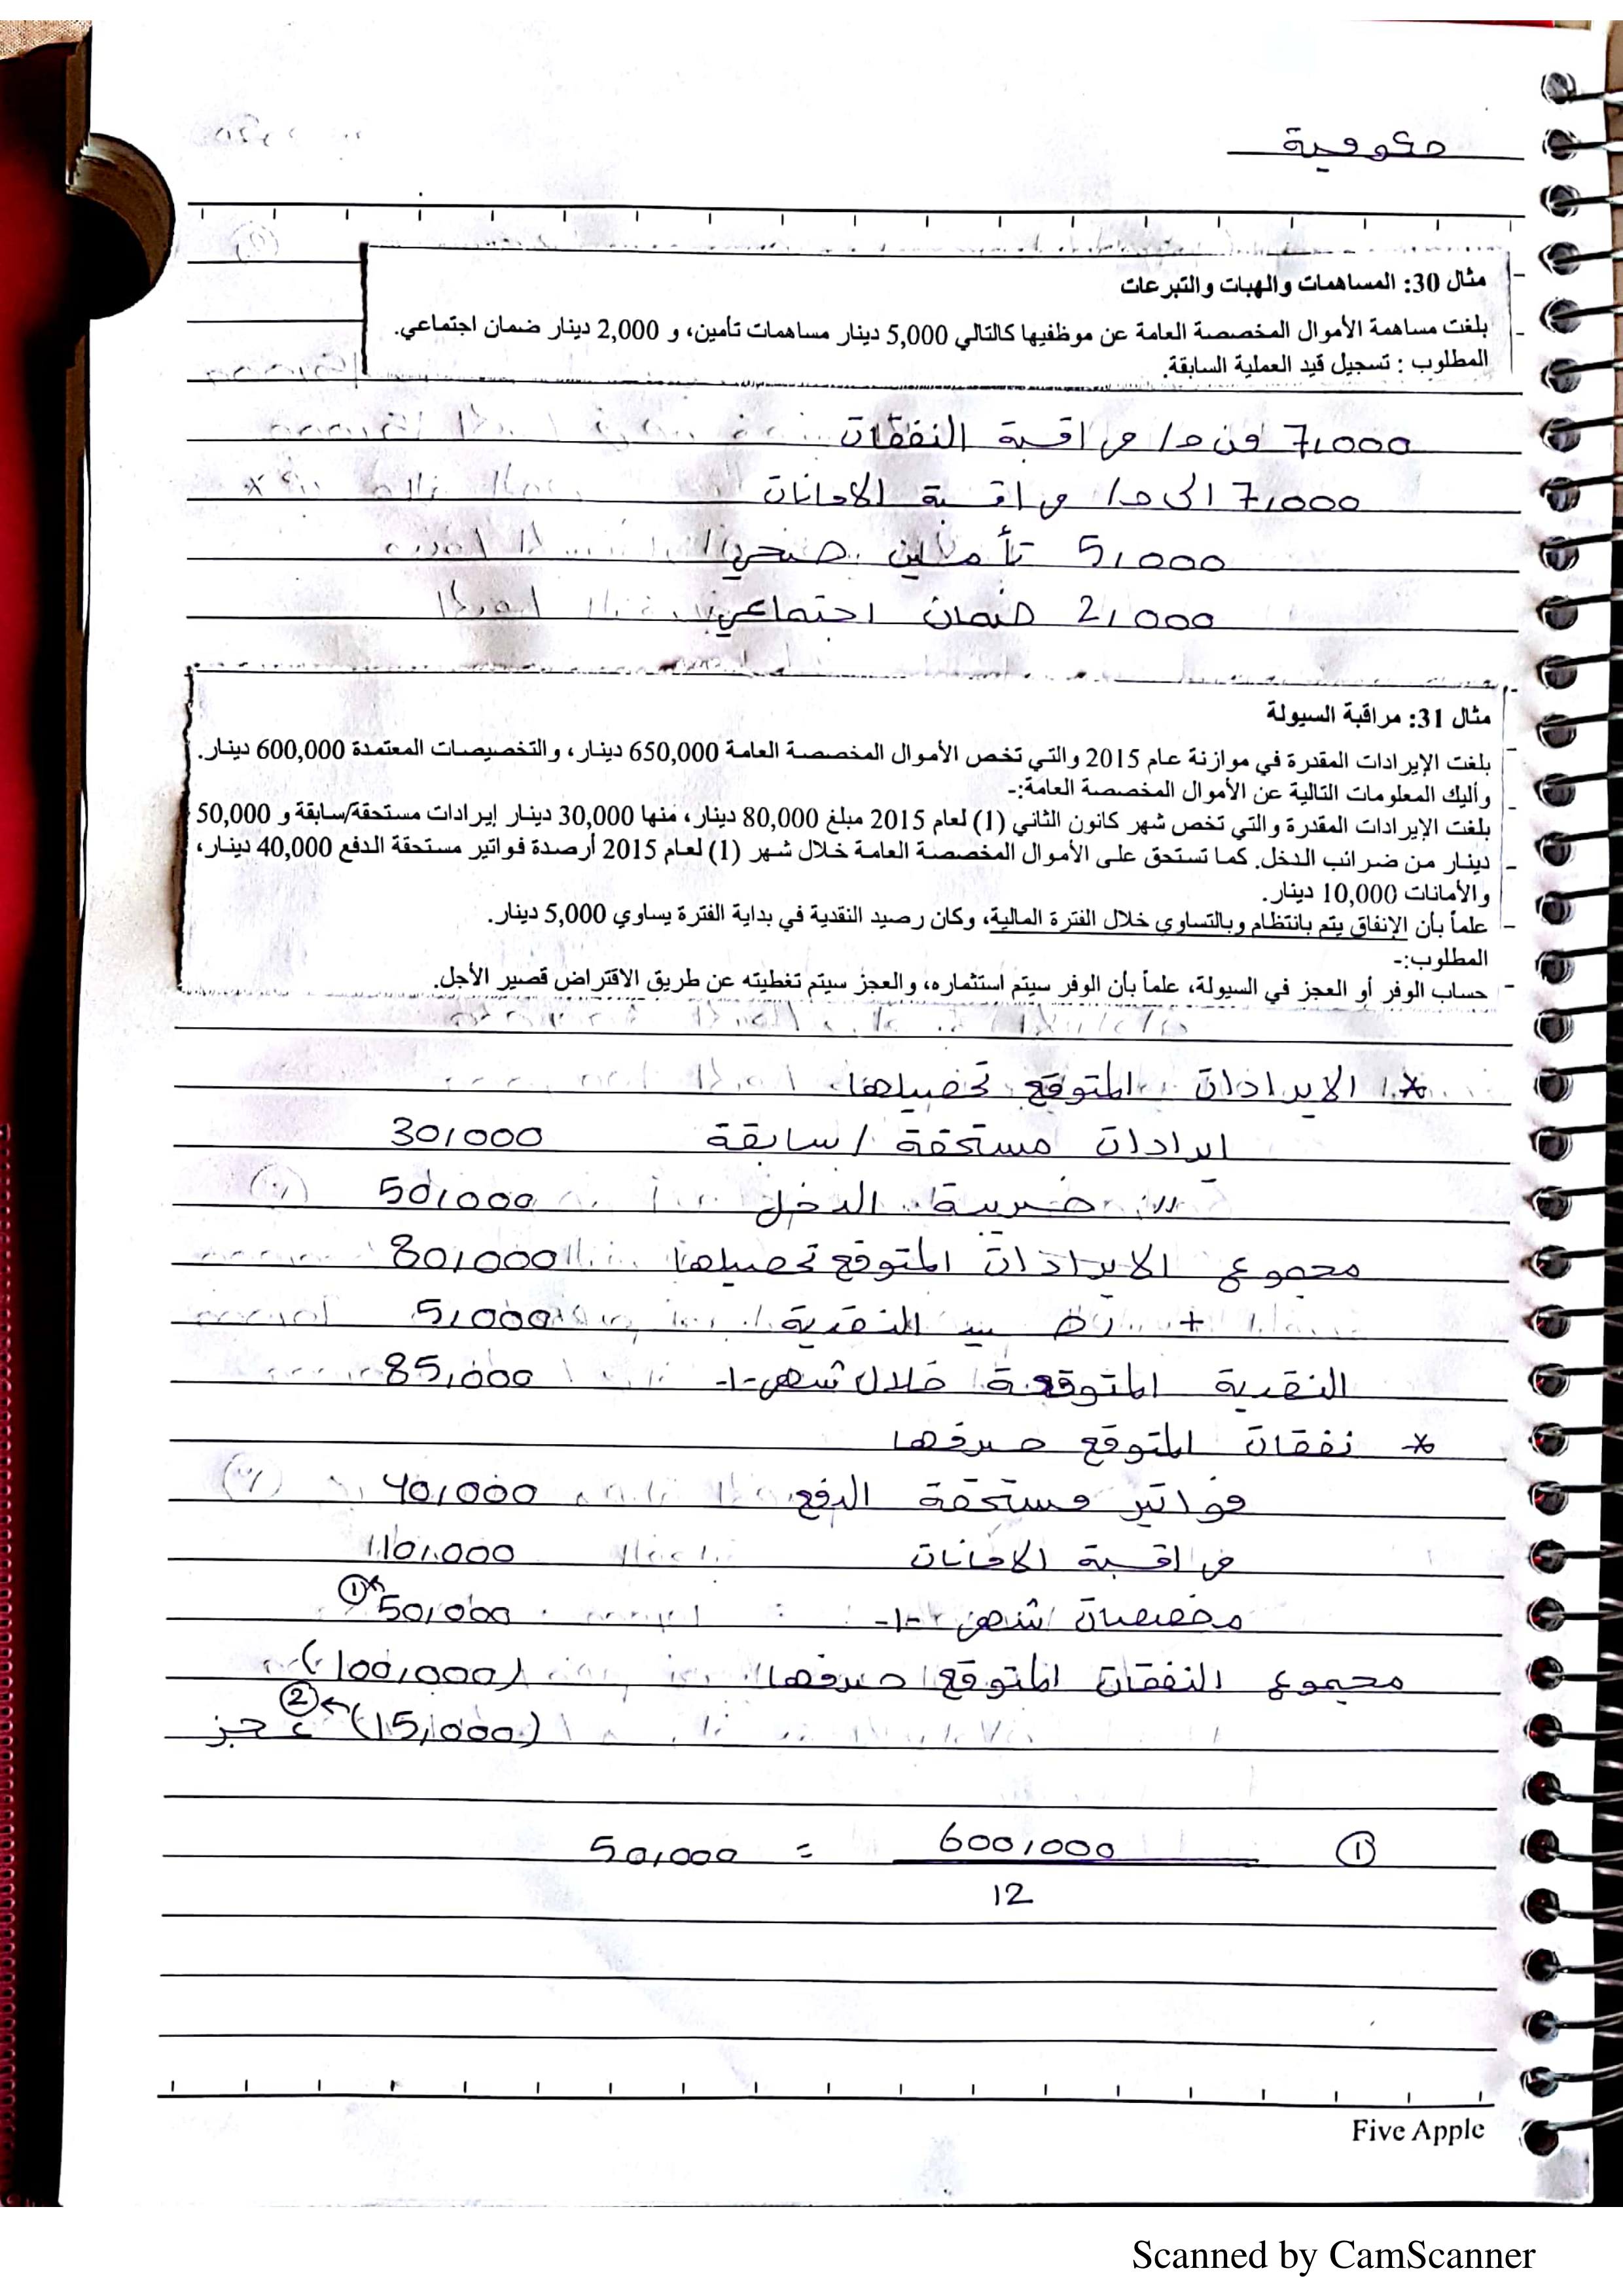 حكومية
مثال 30: المساهمات والهبات والتبرعات
بلغت مساهمة الأموال المخصصة العامة عن موظفيها كالتالي 5,000 دينار مساهمات تأمين، و 2,000 دينار ضمان اجتماعي.
المطلوب : تسجيل قيد العملية السابقة.
7,000 من ح/ مراقبة النفقات
7,000 الى ح/ مراقبة الامانات
5,000 تأمين صحي
2,000 ضمان اجتماعي
مثال 31: مراقبة السيولة
بلغت الإيرادات المقدرة في موازنة عام 2015 والتي تخص الأموال المخصصة العامة 650,000 دينار، والتخصيصات المعتمدة 600,000 دينار.
وأليك المعلومات التالية عن الأموال المخصصة العامة:-
بلغت الإيرادات المقدرة والتي تخص شهر كانون الثاني (1) لعام 2015 مبلغ 80,000 دينار، منها 30,000 دينار إيرادات مستحقة/سابقة و 50,000
دينار من ضرائب الدخل. كما تستحق على الأموال المخصصة العامة خلال شهر (1) لعام 2015 أرصدة فواتير مستحقة الدفع 40,000 دينار،
والأمانات 10,000 دينار.
علماً بأن الإنفاق يتم بانتظام وبالتساوي خلال الفترة المالية، وكان رصيد النقدية في بداية الفترة يساوي 5,000 دينار.
المطلوب:-
حساب الوفر أو العجز في السيولة، علماً بأن الوفر سيتم استثماره، والعجز سيتم تغطيته عن طريق الاقتراض قصير الأجل.
* الايرادات المتوقع تحصيلها
ايرادات مستحقة / سابقة 30,000
// ضريبة الدخل 50,000
مجموع الايرادات المتوقع تحصيلها 80,000
+ رصيد النقدية 5,000
النقدية المتوقعة خلال شهر -1- 85,000
* نفقات المتوقع صرفها
فواتير مستحقة الدفع 40,000
مراقبة الامانات 10,000
مخصصات شهر -1- 50,000 ①
مجموع النفقات المتوقع صرفها (100,000)
(15,000) عجز ②
① 600,000 = 50,000
12
Five Apple
Scanned by CamScanner